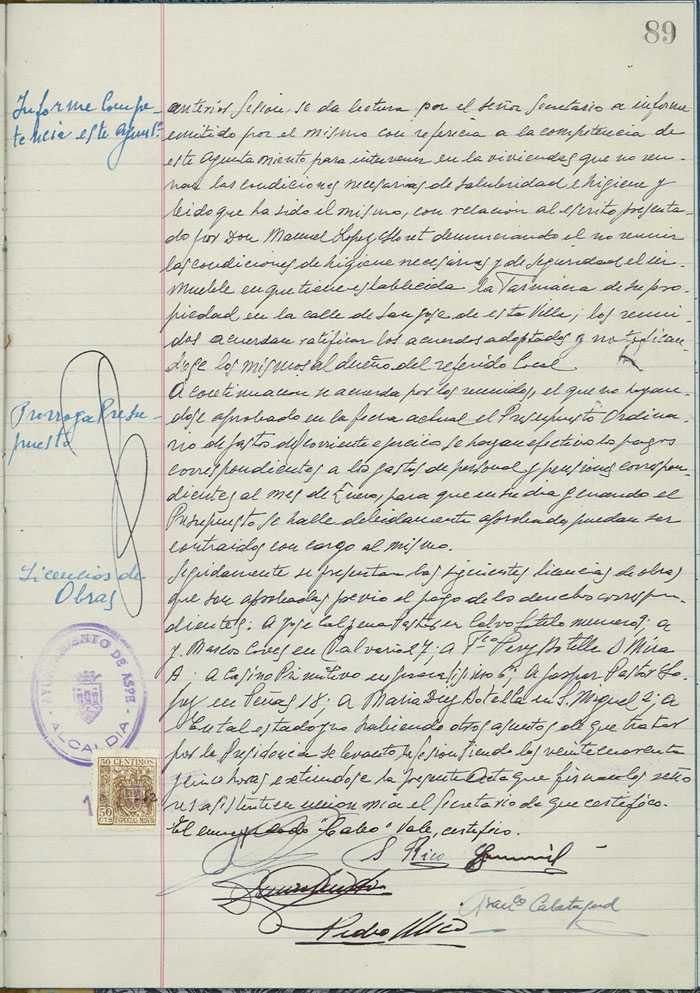 89
Informe Compe-
tencia este Aymtº
anterior sesion, se da lectura por el señor Secretario a informe
emitido por el mismo con refericia a la competencia de
este Ayuntamiento para intervenir en la viviendas que no reu-
nan las condiciones necesarias de salubridad e higiene y
leido que ha sido el mismo, con relacion al escrito presenta-
do por Don Manuel Lopez Lloret denunciando el no reunir
las condiciones de higiene necesarias y de seguridad el in-
mueble en que tiene establecida la Farmacia de su pro-
piedad en la calle de San Jose de esta Villa; los reuni-
dos acuerdan ratificar los acuerdos adoptados y notifican-
dose los mismos al dueño del referido local
Prorroga Presu-
puesto
A continuacion se acuerda por los reunidos, el que no hayan-
dose aprobado en la fecha actual el Presupuesto Ordina-
rio de gasto del corriente ejercicio se hagan efectivo los pagos
correspondientes a los gastos de personal y pensiones correspon-
dientes al mes de Enero, para que en su dia y cuando el
Presupuesto se halle debidamente aprobado puedan ser
contraidos con cargo al mismo.
Licencias de
Obras
Seguidamente se presentan las siguientes licencias de obras
que son aprobadas previo el pago de los derechos correspon-
dientes: A Jose en Calvo Sotelo numero 9; a
J. Marco Coves en Calvario 27; a Fco Perez Botella D Mira
A. a Casino Primitivo en 6; A Gaspar Pastor
en Peñas 18; a Maria Botella en S. Miguel 2; a
En tal estado y no habiendo otros asuntos de que tratar
por la Presidencia se levanto la sesion siendo las veinte cuarenta
y cinco horas extiendose la presente Acta que firman los seño
res asistente en union mia el Secretario de que certifico.
El enmendado "Calvo" Vale, certifico.
AYUNTAMIENTO DE ASPE
ALCALDIA
50 CENTIMOS
50 CTS
ESPECIAL MOVIL
S Rico
Franco Calatayud
Pedro Mico